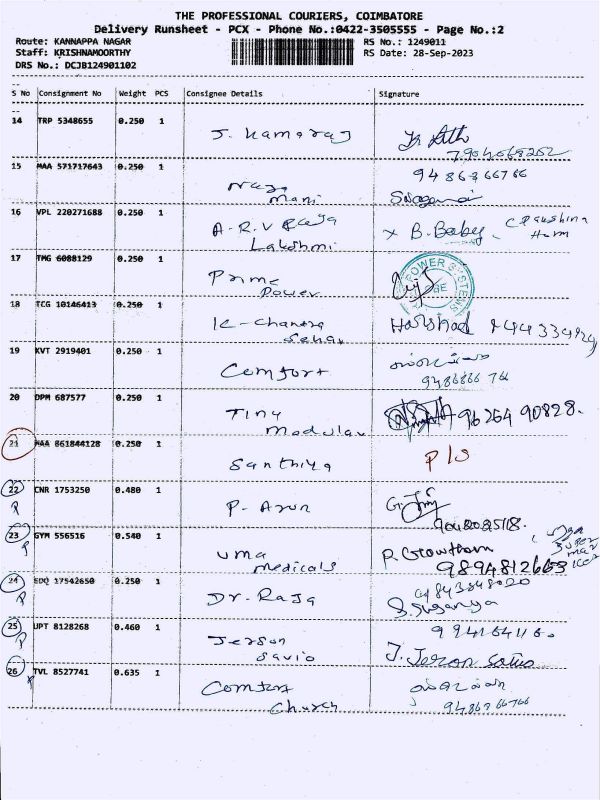 THE PROFESSIONAL COURIERS, COIMBATORE
Delivery Runsheet - PCX - Phone No.:0422-3505555 - Page No.:2
Route: KANNAPPA NAGAR RS No.: 1249011
Staff: KRISHNAMOORTHY RS Date: 28-Sep-2023
DRS No.: DCJB124901102
S No Consignment No Weight PCS Consignee Details Signature
14 TRP 5348655 0.250 1
J. Kamaraj
15 MAA 571717643 0.250 1 9486766766
Naga
Mani
16 VPL 220271688 0.250 1
A-R.V Raja x B. Baby
Lakshmi
17 TMG 6088129 0.250 1
Prime POWER SYSTEMS
Power
18 TCG 10146413 0.250 1
K-Chandra Harshad
Sekar
19 KVT 2919401 0.250 1
Comfort
9486866 766
20 DPM 687577 0.250 1
Tiny 96264 90828.
Modular
21 MAA 861844128 0.250 1
Santhiya P/S
22 CNR 1753250 0.480 1
P P- Arun
23 GYM 556516 0.540 1
P Uma R Growtham
Medicals 9894812663
24 EDQ 17542650 0.250 1
P Dr. Raja S. Suganya
25 UPT 8128268 0.460 1
P Jerson
Savio J. Jerson Savio
26 TVL 8527741 0.635 1
P Comfort
Church 9486766766